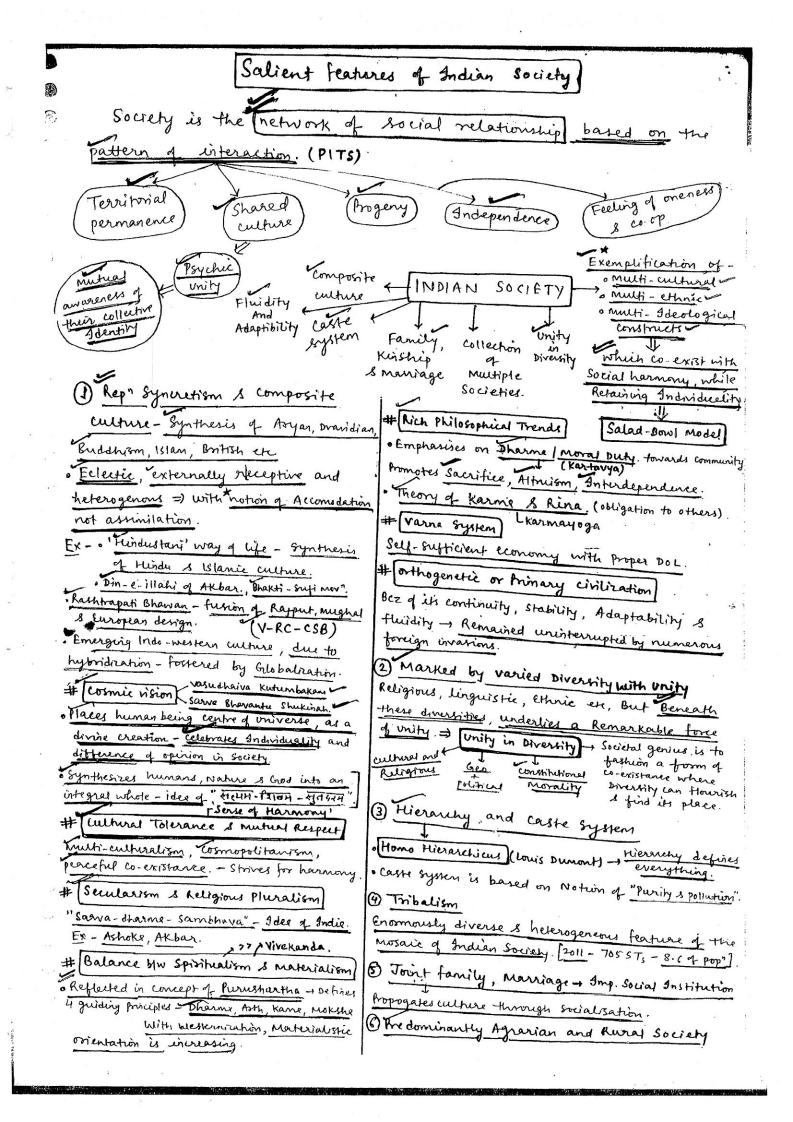 Salient features of Indian Society
Society is the network of social relationship based on the
pattern of interaction. (PITS)
Territorial
permanence
Shared
culture
Progeny
Independence
Feeling of oneness
& co.op.
Psychic
unity
Mutual
awareness of
their collective
Identity
INDIAN SOCIETY
Composite
culture
Fluidity
And
Adaptibility
Caste
System
Family,
Kinship
& Marriage
Collection
of
Multiple
Societies.
Unity
in
Diversity
Exemplification of -
• Multi-cultural
• Multi-ethnic
• Multi-Ideological
constructs
which co-exist with
Social harmony, while
Retaining Individuality
Salad-Bowl Model
① Repn Syncretism & composite
culture - Synthesis of Aryan, Dravidian,
Buddhism, Islam, British etc
• Eclectic, externally receptive and
heterogenous ⇒ with notion of Accomodation
not assimilation.
Ex - • 'Hindustani' way of life - Synthesis
of Hindu & Islamic culture.
• Din-e-illahi of Akbar, Bhakti-Sufi movn.
• Rashtrapati Bhawan - fusion of Rajput, Mughal
& European design. (V-RC-CSB)
• Emerging Indo-western culture, due to
hybridization - fostered by Globalization.
# Cosmic vision
Vasudhaiva Kutumbakam
Sarve Bhavantu Sukhinah.
• Places human being centre of universe, as a
divine creation - celebrates Individuality and
difference of opinion in society
• Synthesizes humans, Nature & God into an
integral whole - idea of "सत्यम-शिवम-सुन्दरम"
'Sense of Harmony'
# Cultural Tolerance & Mutual Respect
Multi-culturalism, Cosmopolitanism,
peaceful co-existance. - Strives for harmony.
# Secularism & Religious Pluralism
"Sarva-dharma-Sambhava" - Idea of India.
Ex - Ashoka, Akbar.
>> Vivekanda.
# Balance b/w Spiritualism & materialism
• Reflected in concept of Purushartha → Defines
4 guiding principles - Dharma, Arth, Kama, Moksha
With Westernization, Materialistic
orientation is increasing.
# Rich Philosophical Trends
• Emphasises on Dharma / Moral Duty towards community
(Kartavya)
Promotes Sacrifice, Altruism, Interdependence.
• Theory of Karma & Rina (obligation to others).
Karmayoga
# Varna System
Self-Sufficient economy with Proper DOL.
# Orthogenetic or Primary civilization
Bcz of its continuity, Stability, Adaptability &
fluidity → Remained uninterrupted by numerous
foreign invasions.
② Marked by varied Diversity with Unity
Religious, linguistic, Ethnic etc, But Beneath
these diversities, underlies a Remarkable force
of unity ⇒ Unity in Diversity
cultural and
Religious
Geo
+
Political
constitutional
Morality
→ Societal genius is to
fashion a form of
co-existance where
Diversity can flourish
& find its place.
③ Hierarchy and Caste System
• Homo Hierarchicus (Louis Dumont) → Hierarchy defines
everything.
• Caste System is based on Notion of "Purity & pollution".
④ Tribalism
Enormously diverse & heterogeneous feature of the
Mosaic of Indian Society. [2011 - 705 STs - 8.6 of popn].
⑤ Joint family, Marriage → Imp. Social Institution
Propogates culture through Socialisation.
⑥ Predominantly Agrarian and Rural Society